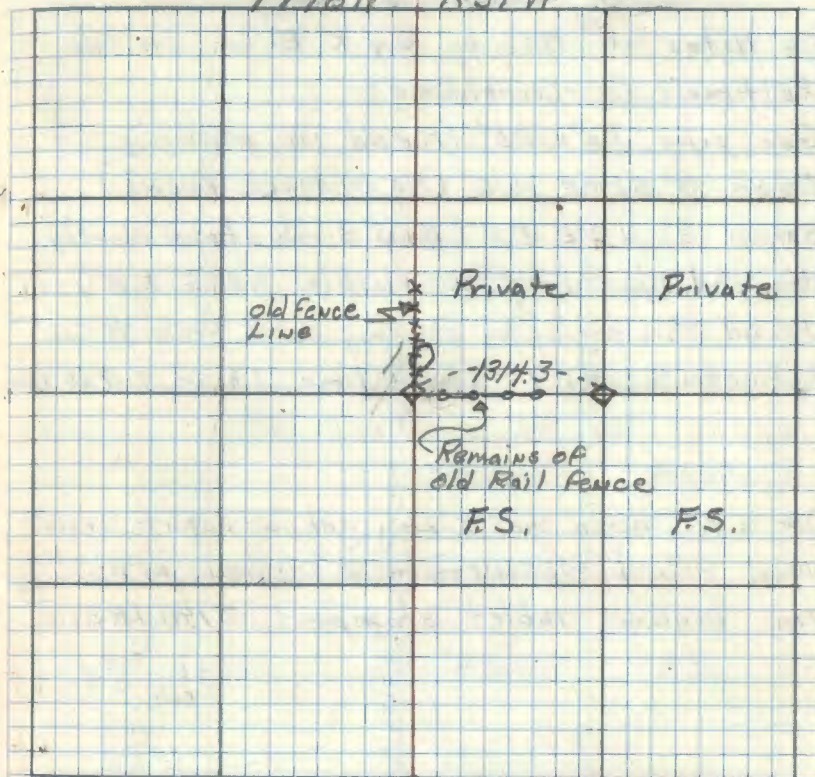 Private Private
old Fence
LINE
1314.3
Remains of
old Rail fence
F.S. F.S.